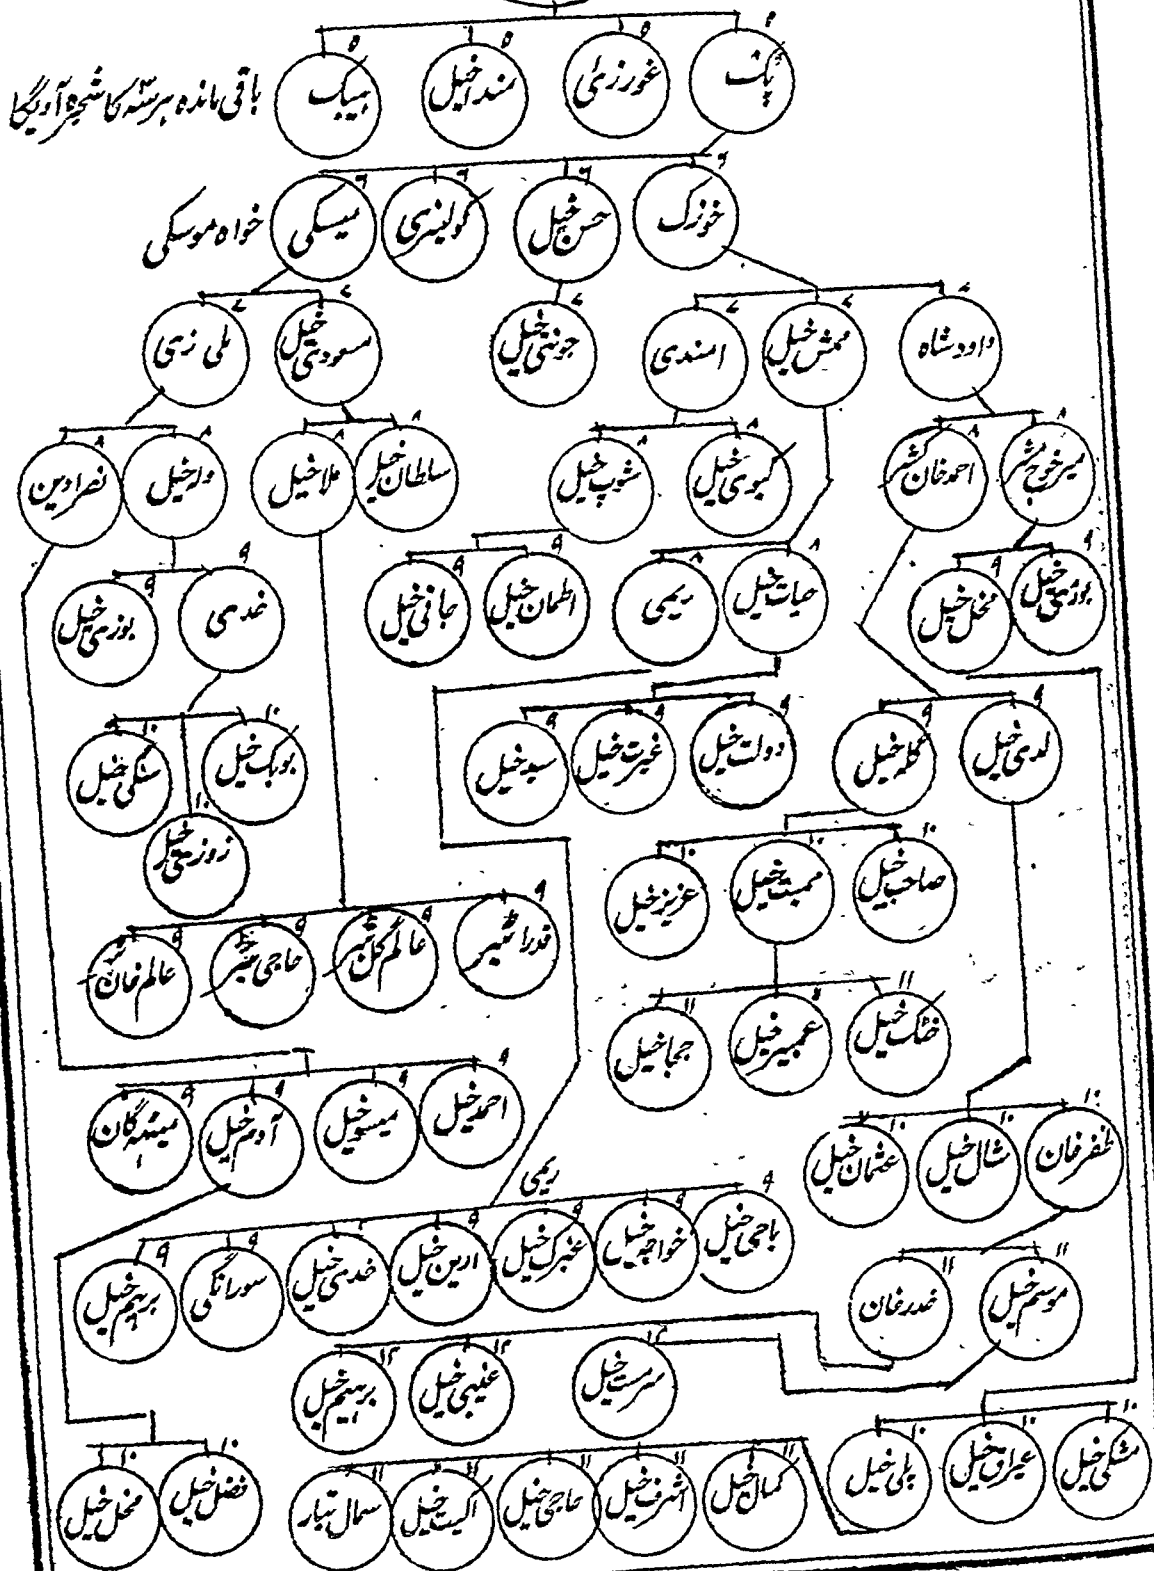 پک
غورزئی
منداخیل
ہیبک
باقی ماندہ ہر سہ کا شجرہ آویگا
خوزک
حسن خیل
میسکی
خواہ موسکی
داود شاہ
ممش خیل
اسندی
جونتی خیل
مسعودی خیل
ملی زئی
میر خوجہ مشر
احمد خان کشر
کبوی خیل
شوپ خیل
سلطان خیل
ملا خیل
ولد خیل
نصرادین
بوزی خیل
مخل خیل
حیات خیل
ریمی
اطمان خیل
جانی خیل
خدی
بوزی خیل
لدی خیل
کلہ خیل
دولت خیل
غیرت خیل
سید خیل
بوبک خیل
سنگی خیل
زوزی خیل
صاحب خیل
ممبت خیل
عزیز خیل
قدرا شیر
عالم گل شیر
حاجی شیر
عالم خان
خٹک خیل
عمبیر خیل
ججا خیل
احمد خیل
میسو خیل
آدم خیل
ظفر خان
شال خیل
عثمان خیل
ریمی
باجی خیل
خواجہ خیل
عنبرک خیل
ادین خیل
خدی خیل
سورانگی
برہیم خیل
موسم خیل
صدر خان
سرمست خیل
غیبی خیل
برہیم خیل
مشکی خیل
عیراق خیل
پلی خیل
کمال خیل
اشرف خیل
حاجی خیل
اکیت خیل
سمال تیار
فضل خیل
مخل خیل